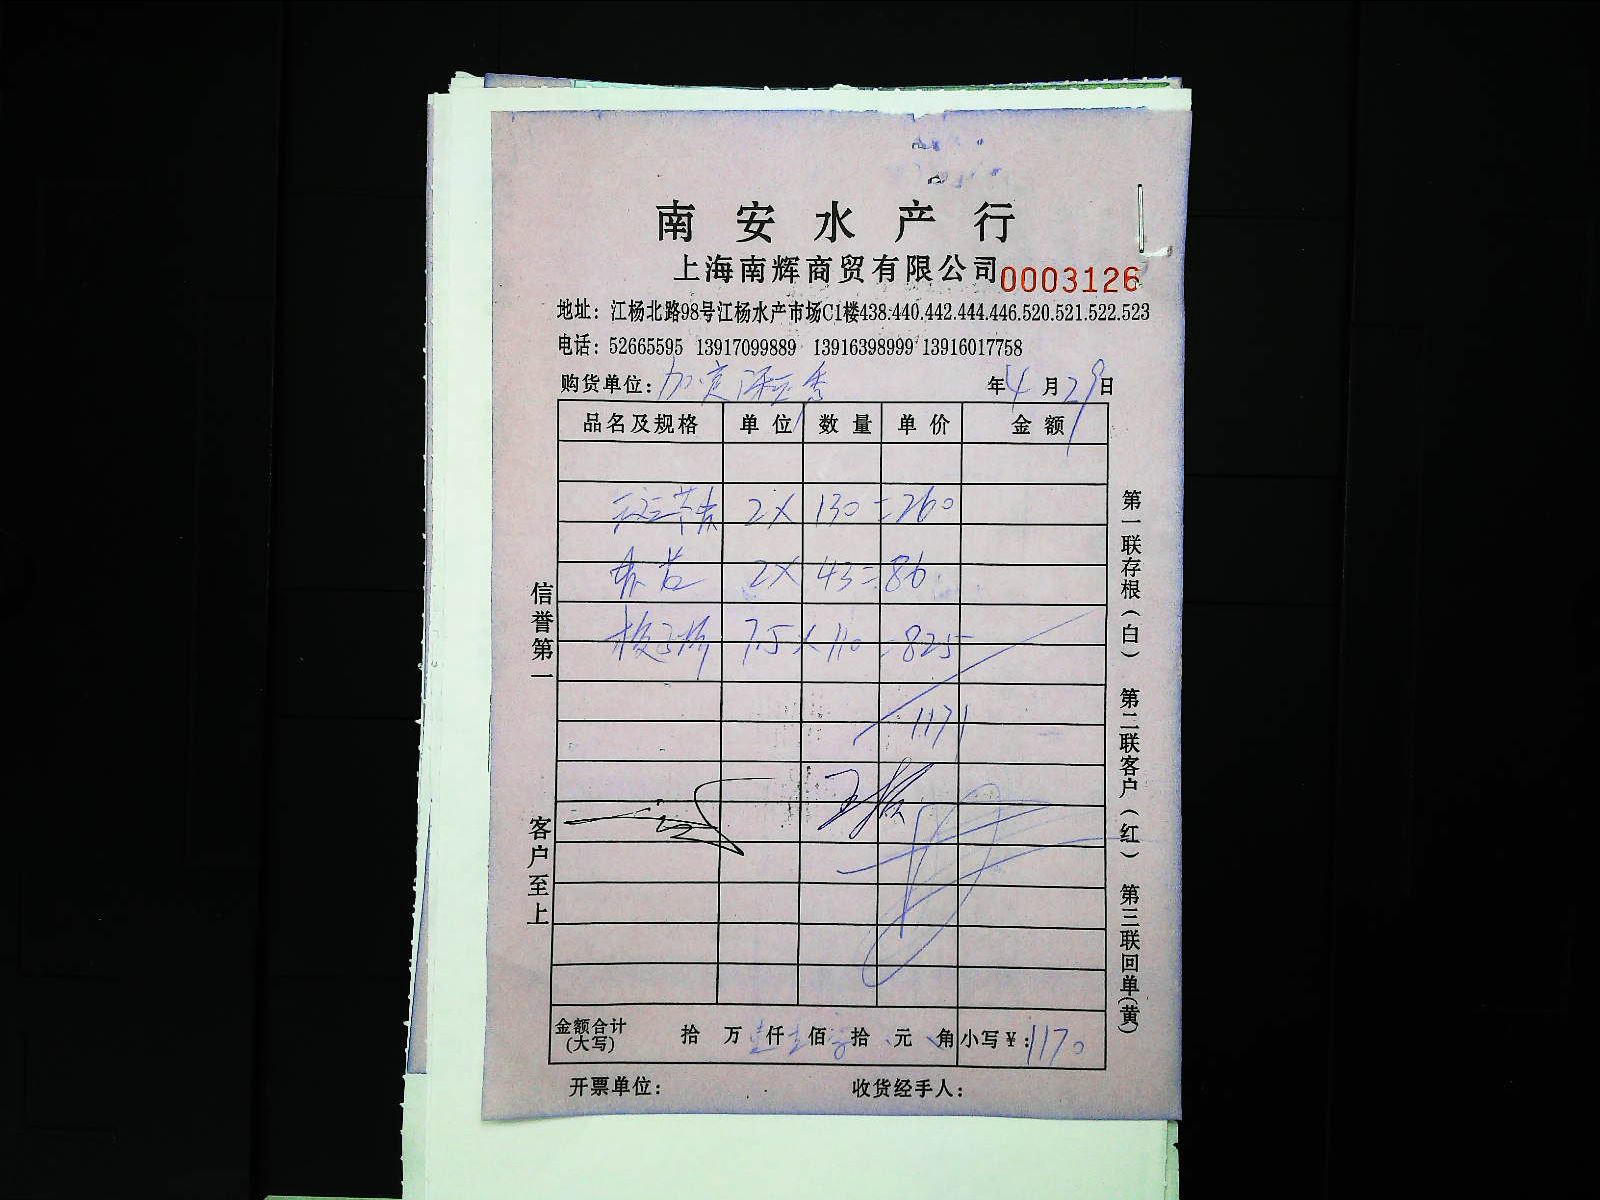 南安水产行
上海南辉商贸有限公司 0003126
地址：江杨北路98号江杨水产市场C1楼438.440.442.444.446.520.521.522.523
电话：52665595 13917099889 13916398999 13916017758
购货单位： 年4月29日
品名及规格 单位 数量 单价 金额
2 × 130 = 260
2 × 43 = 86
7.5 × 110 = 825
1171
信誉第一
客户至上
第一联存根(白) 第二联客户(红) 第三联回单(黄)
金额合计(大写) 拾 万壹仟壹佰 拾 元 角 小写￥：1170
开票单位： 收货经手人：